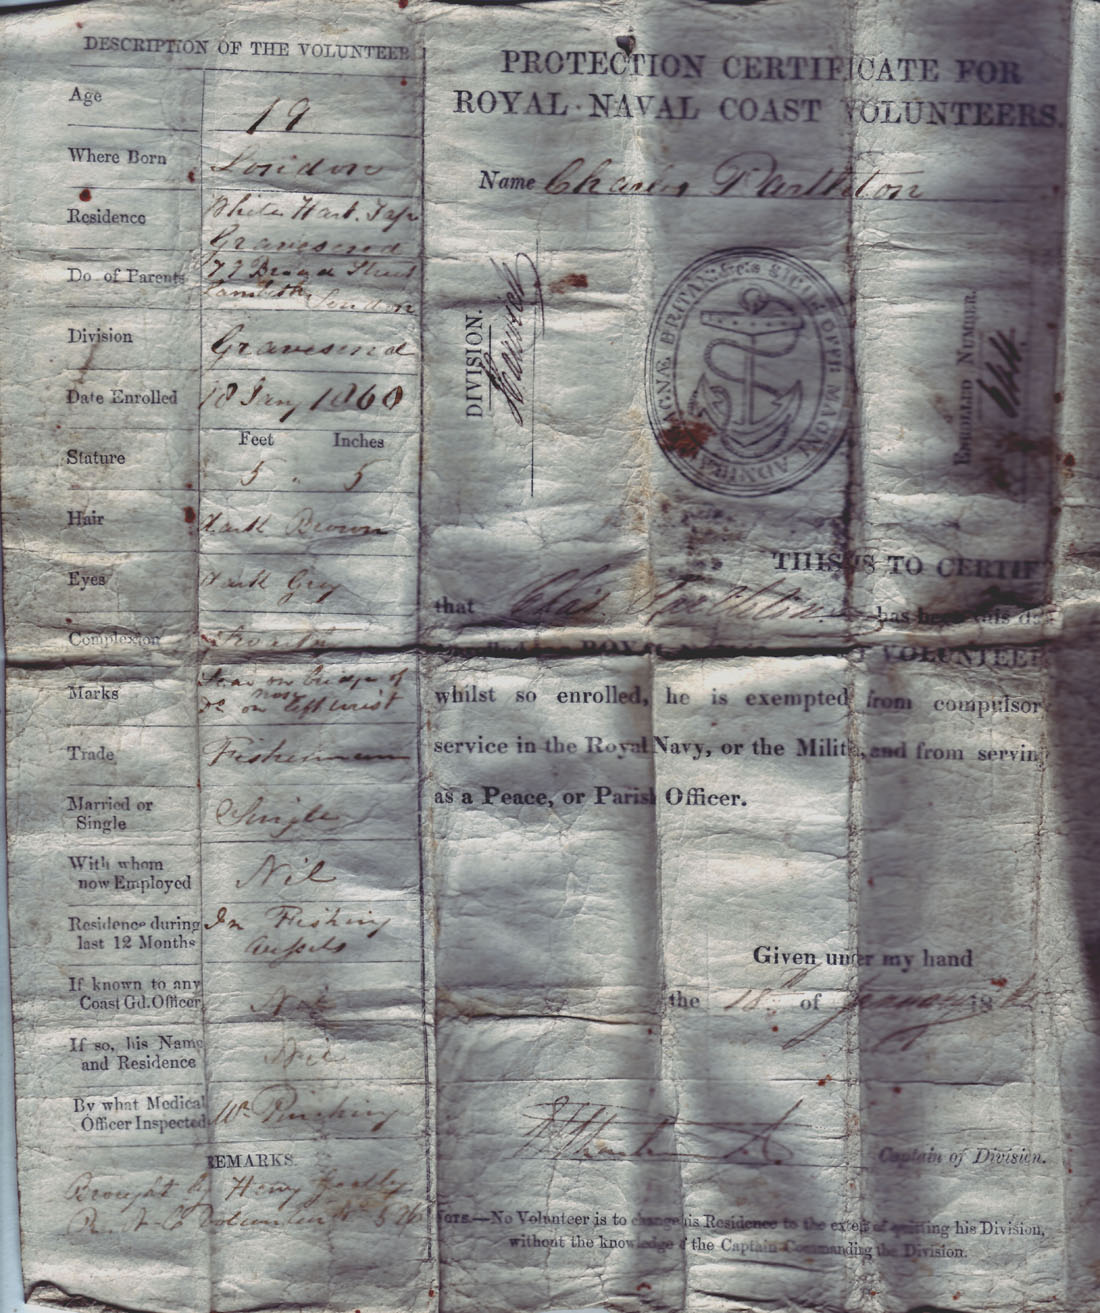 DESCRIPTION OF THE VOLUNTEER
Age 19
Where Born London
Residence White Hart
Gravesend
Do. of Parents 77 Street
Lambeth London
Division Gravesend
Date Enrolled 18 Jany 1860
Feet Inches
Stature 5 . 5
Hair Dark Brown
Eyes Dark Grey
Complexion
Marks Scar on bridge of
nose
Do on left wrist
Trade Fisherman
Married or
Single Single
With whom
now Employed Nil
Residence during In Fishing
last 12 Months
If known to any
Coast Gd. Officer Nil
If so, his Name
and Residence Nil
By what Medical
Officer Inspected Mr
REMARKS
Brought by Henry
Volunteer No 526
PROTECTION CERTIFICATE FOR
ROYAL NAVAL COAST VOLUNTEERS.
Name Charles
DIVISION.
MAGNÆ BRITANNIÆ &c SIGILL OFFII MAGNI ADMIRA
ENROLLED NUMBER.
THIS IS TO CERTIF
that Chas has been this d
ROYAL VOLUNTEE
whilst so enrolled, he is exempted from compulsor
service in the Royal Navy, or the Militi , and from servin
as a Peace, or Parish Officer.
Given under my hand
the 18th of January 18
Captain of Division.
NOTE.—No Volunteer is to change his Residence to the extent of quitting his Division,
without the knowledge of the Captain Commanding the Division.